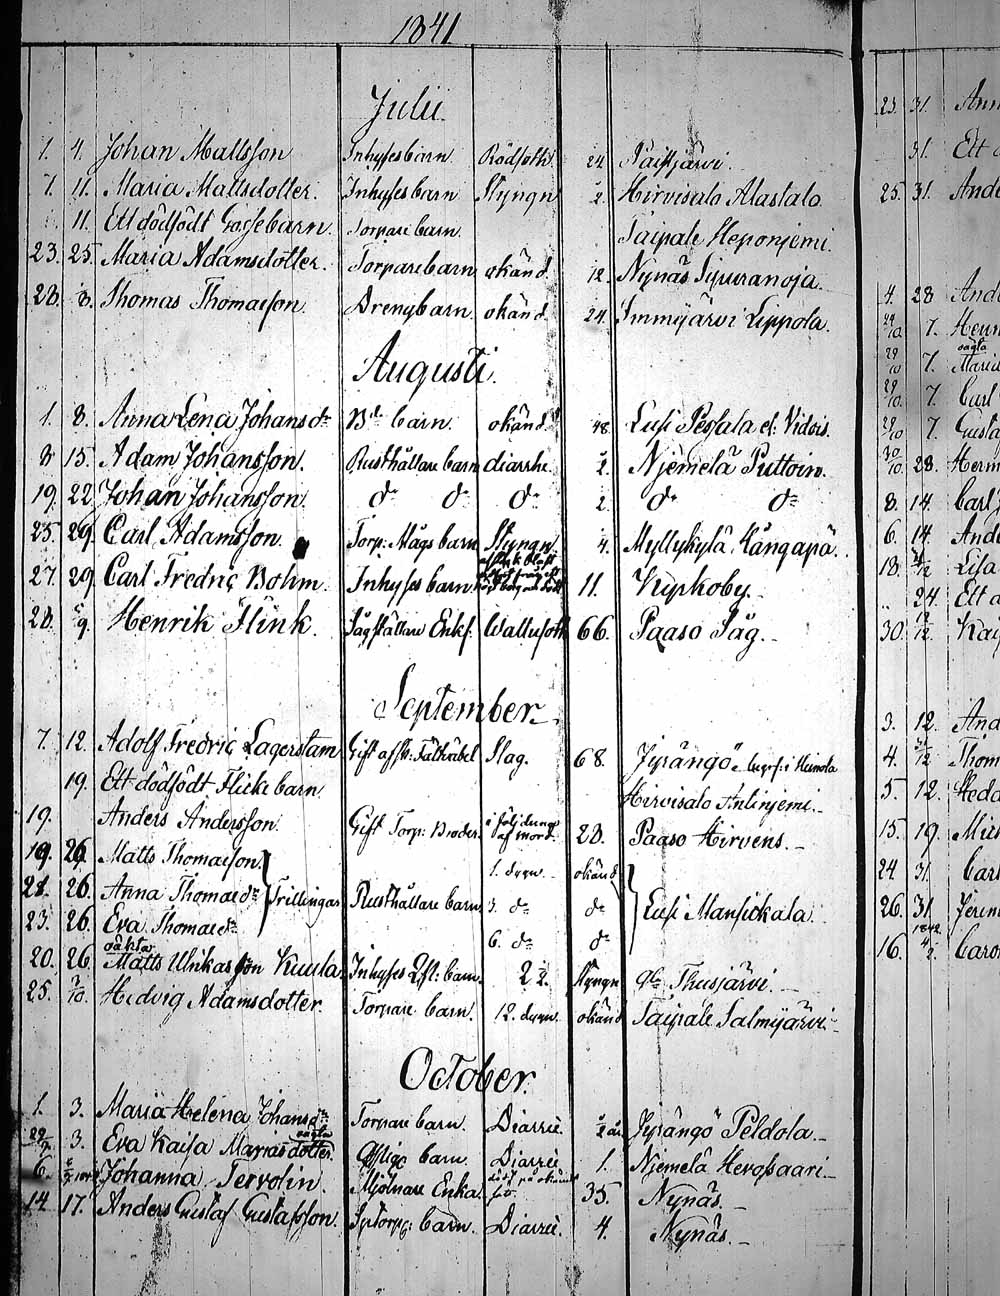 1841
Julii
1. 4. Johan Mattsson Inhyses barn Rödsoth 24
7. 11. Maria Mattsdotter. Inhyses barn Styngn ½. Hirvisalo Alastalo
11. Ett dödfödt Gossebarn. Torpare barn. Taipale Heponjemi.
23. 25. Maria Adamsdotter. Torpare barn okänd 12. Nynäs
28. 8. Thomas Thomasson Drengbarn okänd 24. Immijärvi Lippola.
Augusti.
1. 8. Anna Lena Johansdr barn. okänd 48. Lusi
8 15. Adam Johansson. Rusthållare barn diarrhe. ½. Njemelä Puttoin.
19. 22. Johan Johansson do do do 2. do do
25. 29. Carl Adamsson. Torp: Mågs barn Styngn 4. Myllykylä Kångapä.
27. 29. Carl Fredric Bohm. Inhyses barn 11. Kypkoby.
28. 5/9. Henrik Flink. Enkf. Wattusoth 66. Paaso Såg.
September
7. 12. Adolf Fredric Lagerstam Gift Slag. 68. Jyrängö i Heinola
19. Ett dödfödt Flickebarn. Hirvisalo Anlinjemi.
19. Anders Andersson. Gift Torp: Broder i följd af mord. 28. Paaso Hirvens.
19. 26. Matts Thomasson 1. dygn okänd
21. 26. Anna Thomasdr Trillingar Rusthållare barn 3. do do Lusi Mansickala.
23. 26. Eva Thomasdr 6. do do
oäkta
20. 26 Matts Ulrikasson Kuula Inhyses barn. 2 ½. Styngn Ihusjärvi.
25. 3/10. Hedvig Adamsdotter Torpare barn. 12. dygn. okänd Taipale Salmijärvi.
October.
1. 3. Maria Helena Johansdr Torpare barn. Diarrée ½ år Jyrängö Peldola.
oägta
29/9 3. Eva Kaisa Mariasdotter. barn. Diarrée 1. Njemelä Hevossaari.
6. Johanna Tervolin. Mjölnare Enka. 35. Nynäs.
14 17. Anders Gustaf Gustafsson. barn. Diarrée. 4. Nynäs.
23. 31. Ann
31. Ett
25. 31. Ande
4. 28 And
29/10 7. Henr
oägta
29/10 7. Maria
29/10 7. Carl
29/10 7. Gusta
30/10 28. Herm
8. 14. Carl
6. 14. And
18. Lisa
24. Ett
30. Kai
3. 12. And
4. Thom
5. 12. Hedd
15. 19. Mich
24. 31. Carl
26. 31.
1842
16. 4/2. Caro